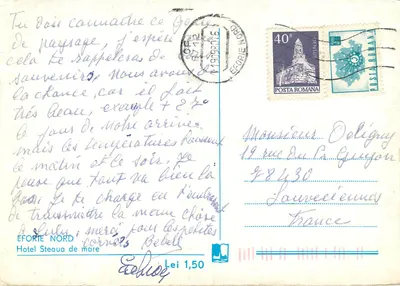 Tu dois connaître ce genre
de paysage, j'espère
cela te rappelera des
souvenirs, nous avons
la chance, car il fait
très beau, exemple + 27°
le jour de notre arrivée
mais les températures
le matin et le soir. Je
pense que tout va bien la
bas. Je te charge en
de transmettre la même chose
à Lulu, merci pour les petites
EFORIE NORD
Hotel Steaua de mare
Lei 1,50
EFORIE NORD
40
POSTA ROMANA
POSTA ROMANA
Monsieur
19 rue du Pr
78430
Louveciennes
France